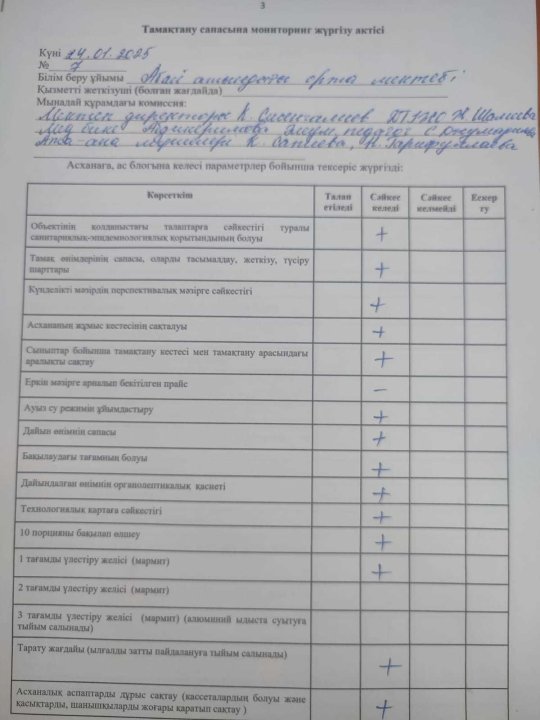 3
Тамақтану сапасына мониторинг жүргізу актісі
Күні 24.01.2025
№ 7
Білім беру ұйымы Абай атындағы орта мектебі
Қызметті жеткізуші (болған жағдайда)
Мынадай құрамдағы комиссия:
Мектеп директоры К. ДТІЖО Ж
Мед бике Әлеум. педагог С.
Ата-ана К. Н.
Асханаға, ас блогына келесі параметрлер бойынша тексеріс жүргізді:
Көрсеткіш Талап етіледі Сәйкес келеді Сәйкес келмейді Ескерту
Объектінің қолданыстағы талаптарға сәйкестігі туралы
санитариялық-эпидемиологиялық қорытындының болуы +
Тамақ өнімдерінің сапасы, оларды тасымалдау, жеткізу, түсіру
шарттары +
Күнделікті мәзірдің перспективалық мәзірге сәйкестігі +
Асхананың жұмыс кестесінің сақталуы +
Сыныптар бойынша тамақтану кестесі мен тамақтану арасындағы
аралықты сақтау +
Еркін мәзірге арналып бекітілген прайс –
Ауыз су режимін ұйымдастыру +
Дайын өнімнің сапасы +
Бақылаудағы тағамның болуы +
Дайындалған өнімнің органолептикалық қасиеті +
Технологиялық картаға сәйкестігі +
10 порцияны бақылап өлшеу +
1 тағамды үлестіру желісі (мармит) +
2 тағамды үлестіру желісі (мармит)
3 тағамды үлестіру желісі (мармит) (алюминий ыдыста суытуға
тыйым салынады)
Тарату жағдайы (ылғалды затты пайдалануға тыйым салынады) +
Асханалық аспаптарды дұрыс сақтау (кассеталардың болуы және
қасықтарды, шанышқыларды жоғары қаратып сақтау ) +